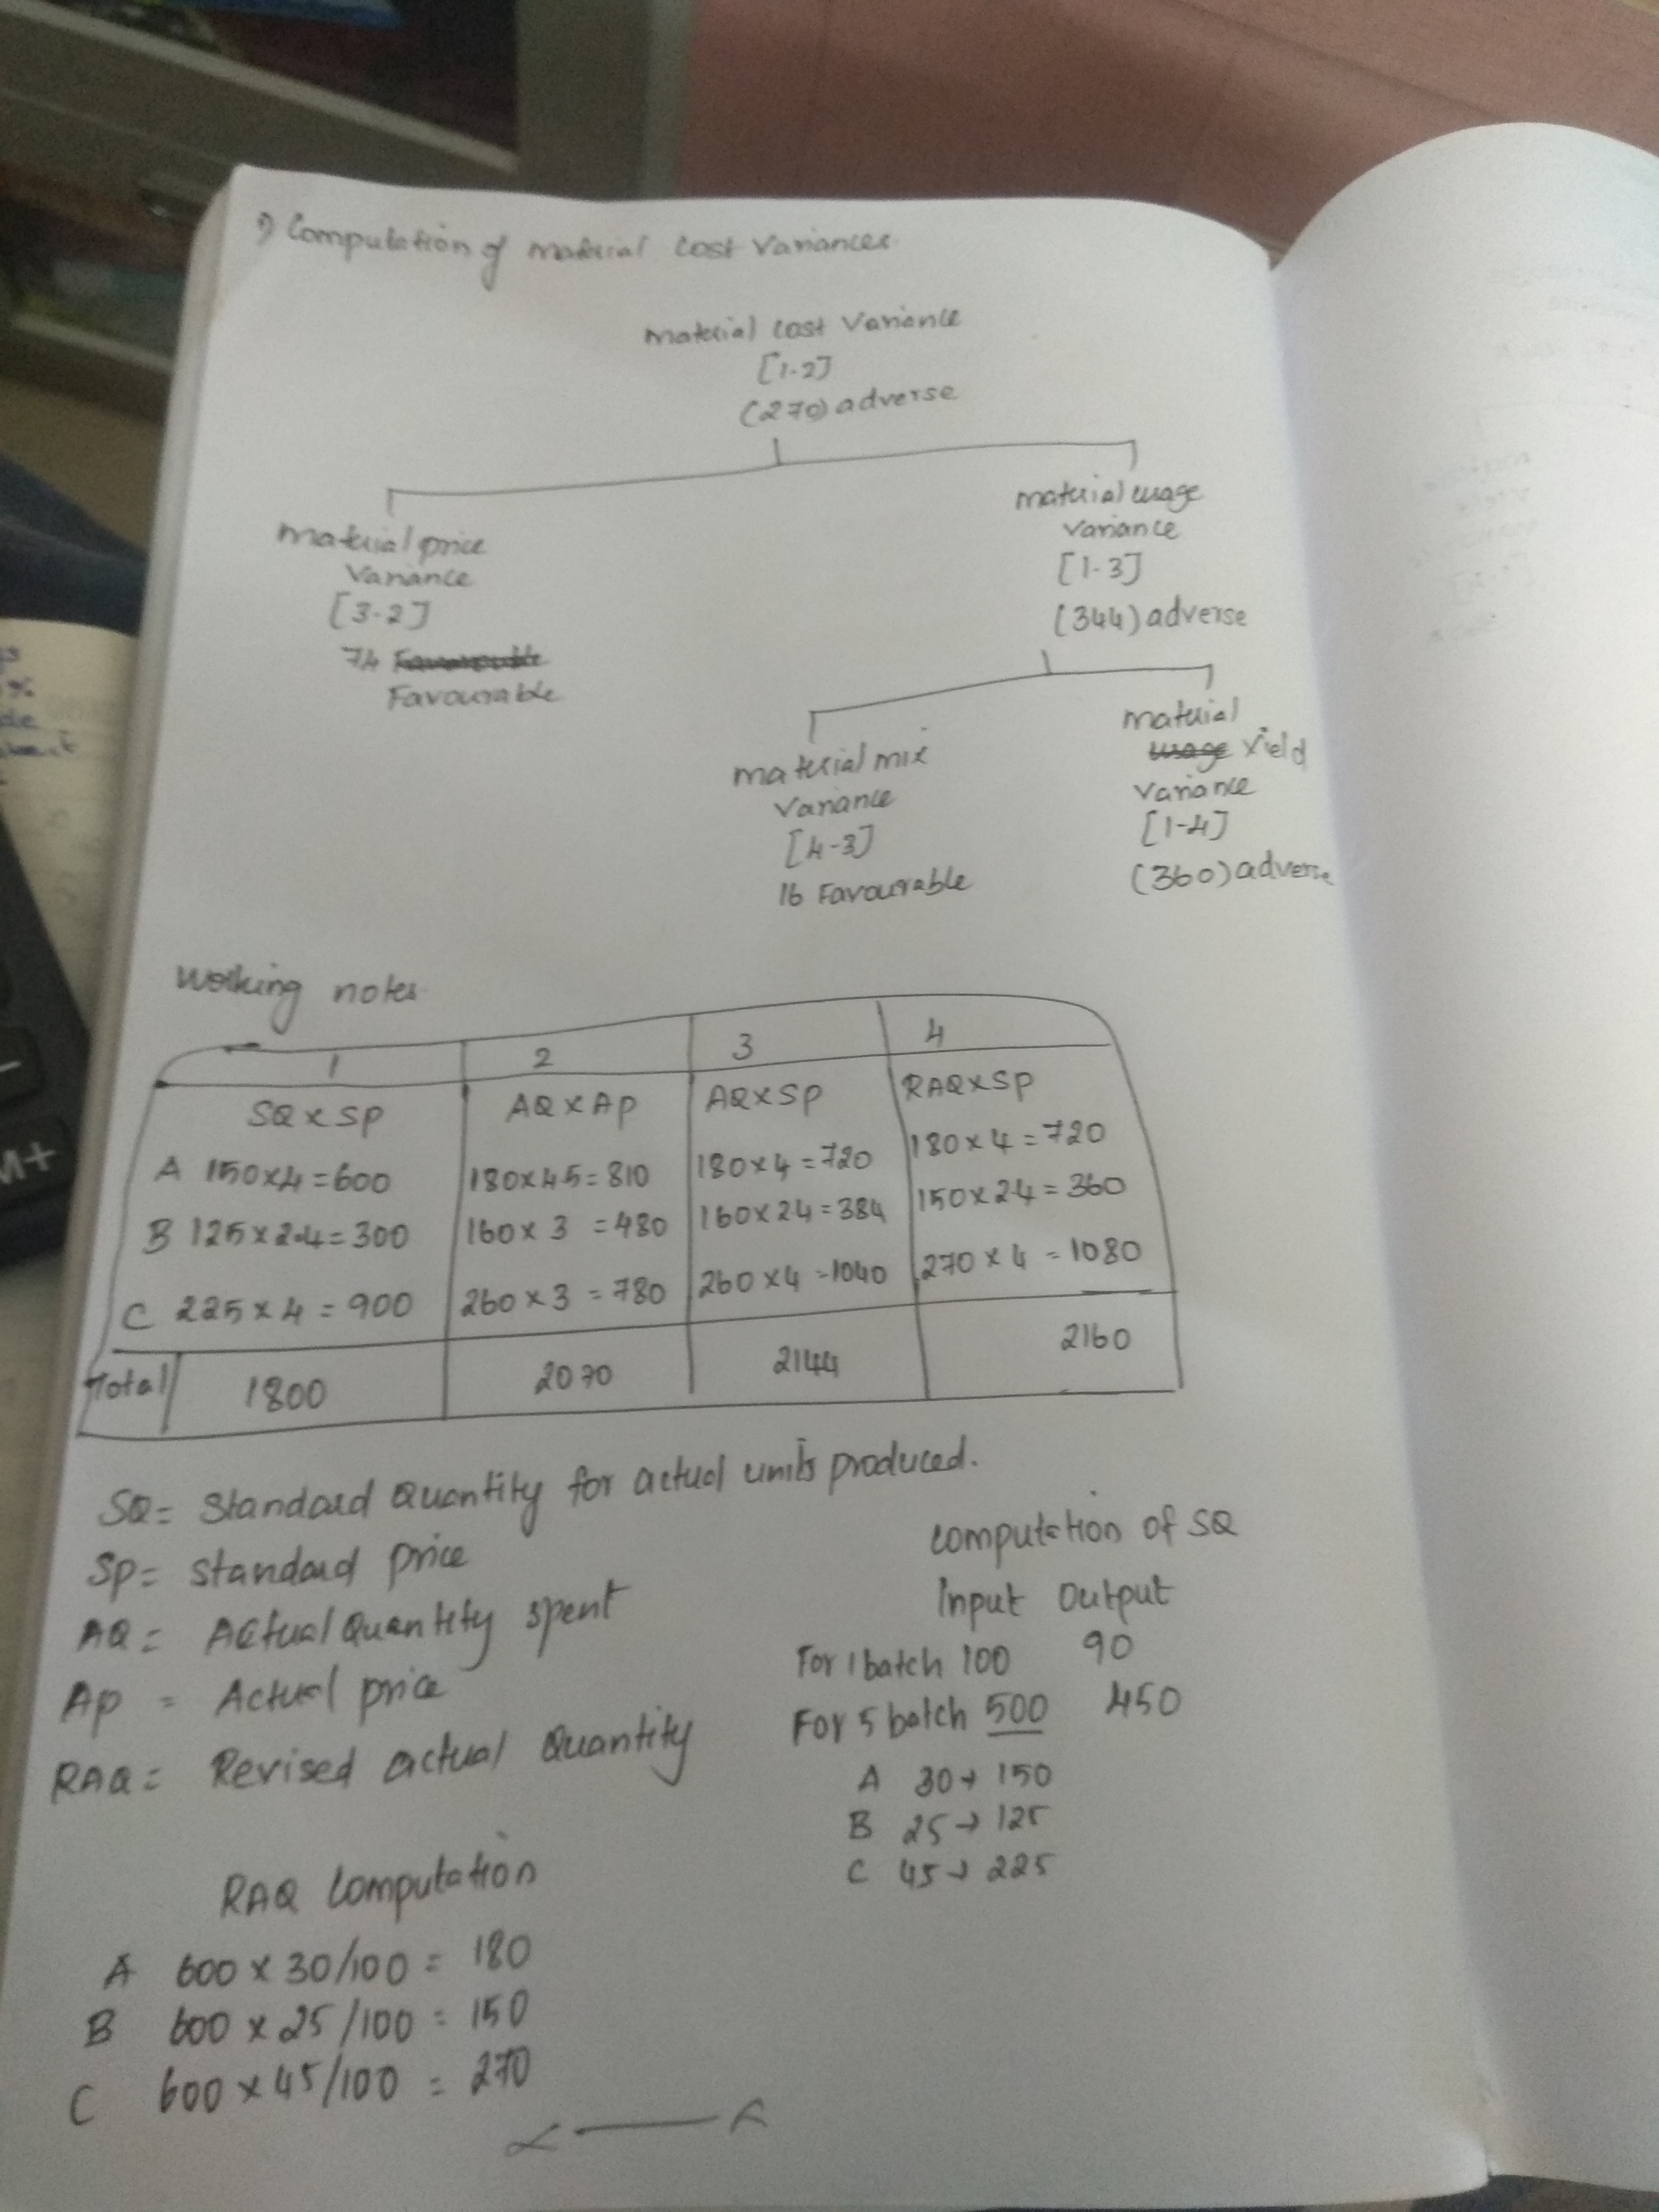 1) Computation of material cost variances
material cost variance
[1-2]
(270) adverse
material price
variance
[3-2]
74
Favourable
material usage
variance
[1-3]
(344) adverse
material mix
variance
[4-3]
16 Favourable
material
usage Yield
variance
[1-4]
(360) adverse
Working notes
1 2 3 4
SQ x SP AQ x AP AQ x SP RAQ x SP
A 150x4=600 180x45=810 180x4=720 180x4=720
B 125x2.4=300 160x3=480 160x24=384 150x24=360
C 225x4=900 260x3=780 260x4=1040 270x4=1080
Total 1800 2070 2144 2160
SQ= Standard Quantity for actual units produced.
SP= standard price
AQ= Actual Quantity spent
AP = Actual price
RAQ= Revised actual Quantity
computation of SQ
Input Output
For 1 batch 100 90
For 5 batch 500 450
A 30→150
B 25→125
C 45→225
RAQ computation
A 600 x 30/100 = 180
B 600 x 25/100 = 150
C 600 x 45/100 = 270
M+